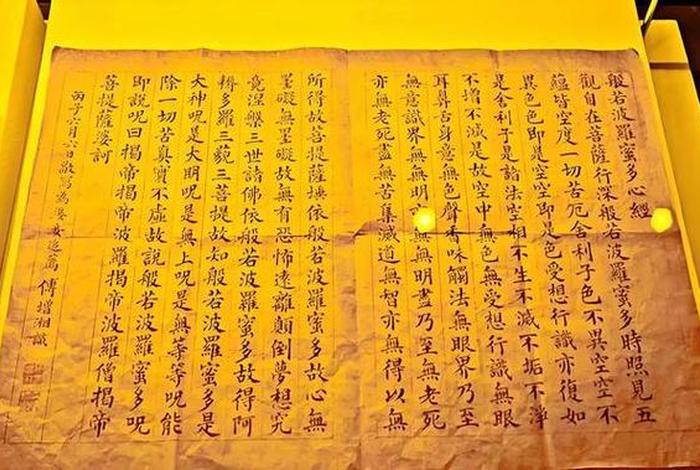 般若波羅蜜多心經
觀自在菩薩行深般若波羅蜜多時照見五
蘊皆空度一切苦厄舍利子色不異空空不
異色色即是空空即是色受想行識亦復如
是舍利子是諸法空相不生不滅不垢不淨
不增不減是故空中無色無受想行識無眼
耳鼻舌身意無色聲香味觸法無眼界乃至
無意識界無無明無無明盡乃至無老死
亦無老死盡無苦集滅道無智亦無得以無
所得故菩提薩埵依般若波羅蜜多故心無
罣礙無罣礙故無有恐怖遠離顛倒夢想究
竟涅槃三世諸佛依般若波羅蜜多故得阿
耨多羅三藐三菩提故知般若波羅蜜多是
大神呪是大明呪是無上呪是無等等呪能
除一切苦真實不虛故說般若波羅蜜多呪
即說呪曰揭帝揭帝波羅揭帝波羅僧揭帝
菩提薩婆訶
丙子六月六日敬寫為追薦 傅增湘識